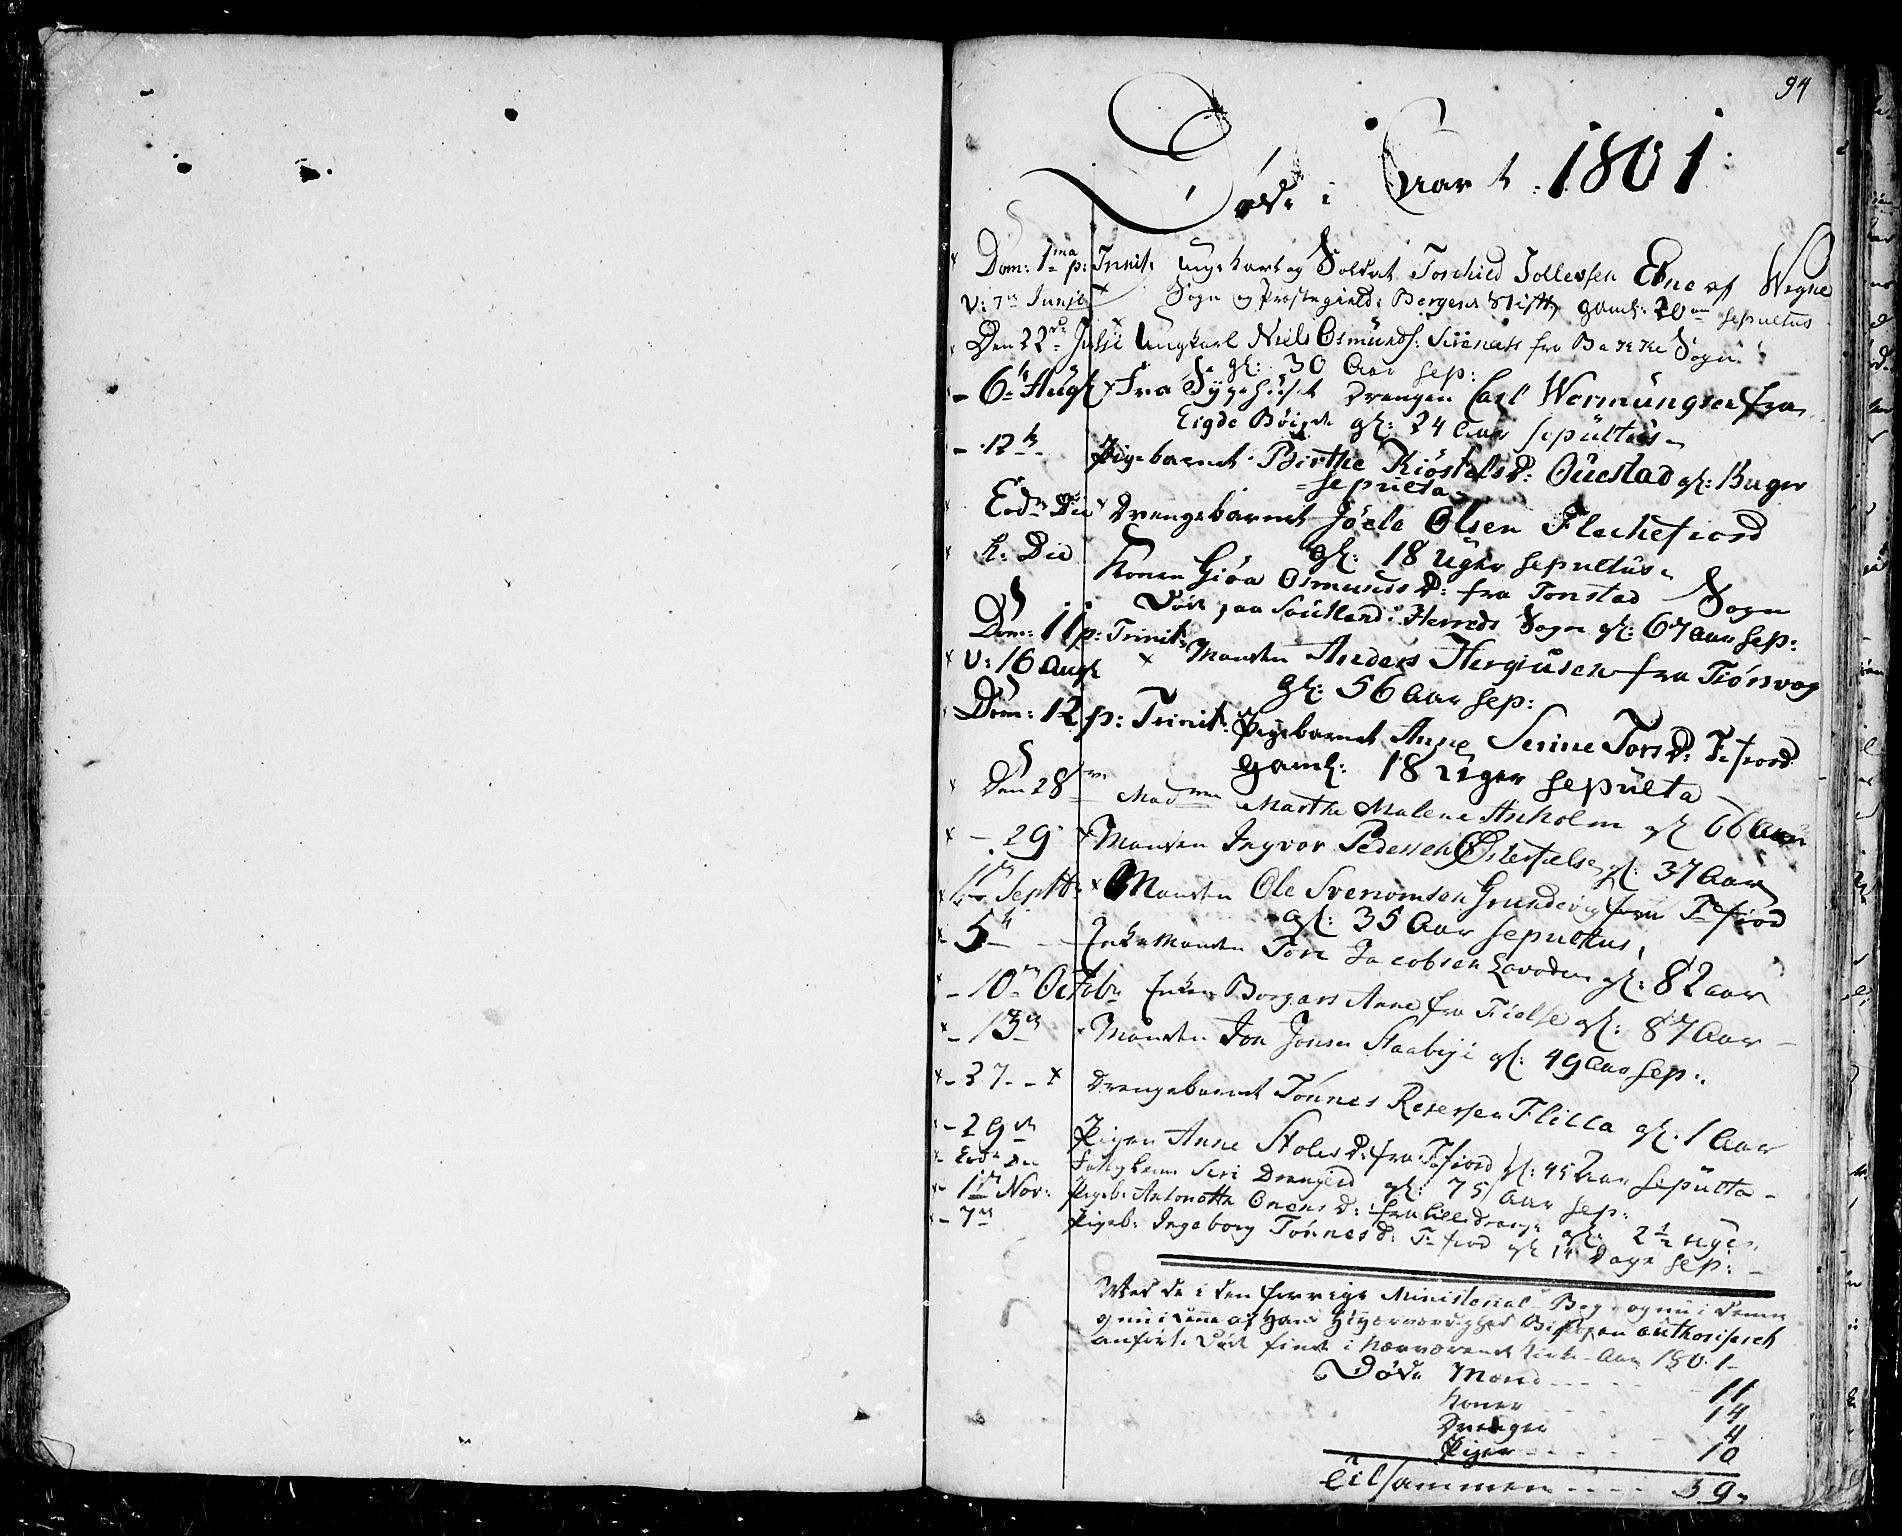 94
Døde i Aaret 1801
Dom: 1ma p: Trinit: ungekarl og Soldat Torchild Tollevsen Ebne af Wegne
V: 7de Junji Sogn og Præstegield: Bergens Stift gaml: 20 sepultus
Den 22de Julji Ungkarl Niels Osmunds: Sirenæs fra Bakke Sogn
gl: 30 Aar sep:
- 6te Augt Fra Sygehuset Drengen Carl Wermungsen fra
Eigde Bøigde gl: 24 Aar sepultus
- 12te Pigebarnet Birthe Kiøstelsd: Ouestad gl: 8 uger
sepulta
Eodm Die Drengebarnet Jøele Olsen Fleckefiord
gl: 18 Uger sepultus
h: Die Konen Giøa Osmundsd: fra Tonstad Sogn
Død paa Soulland: Herreds Sogn gl: 67 aar sep:
Dom: 11 p: Trinit:
V: 16 Augt Manden Anders Hergiusen fra Fiørsvog
gl: 56 Aar sep:
Dom: 12 p: Trinit: Pigebarnet Anne Serine Torsd: F:fiord
gaml: 18 Uger sepulta
Den 28de Madme Marthe Malene Anholm gl 66 Aar
- 29 Manden Ingvor Pedersen Østerfielse gl: 37 Aar
1te Septbr Manden Ole Svenomsen Grundevig fra F:fiord
gl: 35 Aar sepultus
- 5te Enkemanden Tore Jacobsen Lavoden gl: 82 aar
- 10de Octobr Enken Borgars Anne fra Fielse gl: 87 Aar
- 13de Manden Jon Jonsen Staabye gl: 49 Aar sep:
- 27 - Drengebarnet Tønnes Reiersen Flicca gl: 1 Aar
- 29de Pigen Anne Stolesd: fra F:fiord gl: 45 Aar sepulta
Eodm Die Fattiglem Siri Drangeid gl: 75 Aar sep:
- 1te Nov: Pigeb: Antonette Onensd: fra Lilledrange gl: 2 1/2 uger
- 7de Pigeb: Ingeborg Tønnesd: F:fiord gl 14 Dage sep:
Med de i den forrige Ministerial-Bog, og nu i denne
og nu i denne af Hans Høyærværdighed Bispen authoriserede
anførte Døde findes i nærværende Kirke-Aar 1801
Døde Mænd - - - - 11
Koner - - - - 14
Drenger - - - - 4
Piger - - - - 10
tilsammen - - - - 39